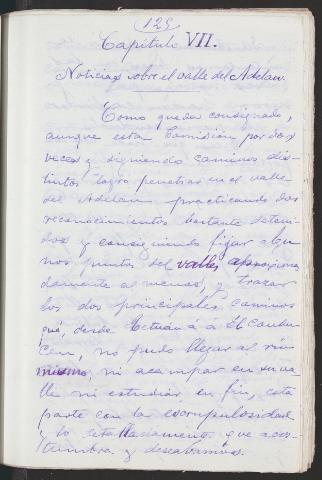 (125)
Capítulo VII.
Noticias sobre el valle del Adelau.
Como queda consignado,
aunque esta Comisión por dos
veces y siguiendo caminos dis-
tintos logró penetrar en el valle
del Adelau practicando dos
reconocimientos bastante deteni-
dos y consiguiendo fijar algu
nos puntos del valle, aproxima
damente al menos, y trazar
los dos principales caminos
que, desde Tetuán a
no pudo llegar al río
mismo, ni acampar en su va-
lle ni estudiar en fin, esta
parte con la escrupulosidad
y lo detalladamente que acos-
tumbra y deseábamos.